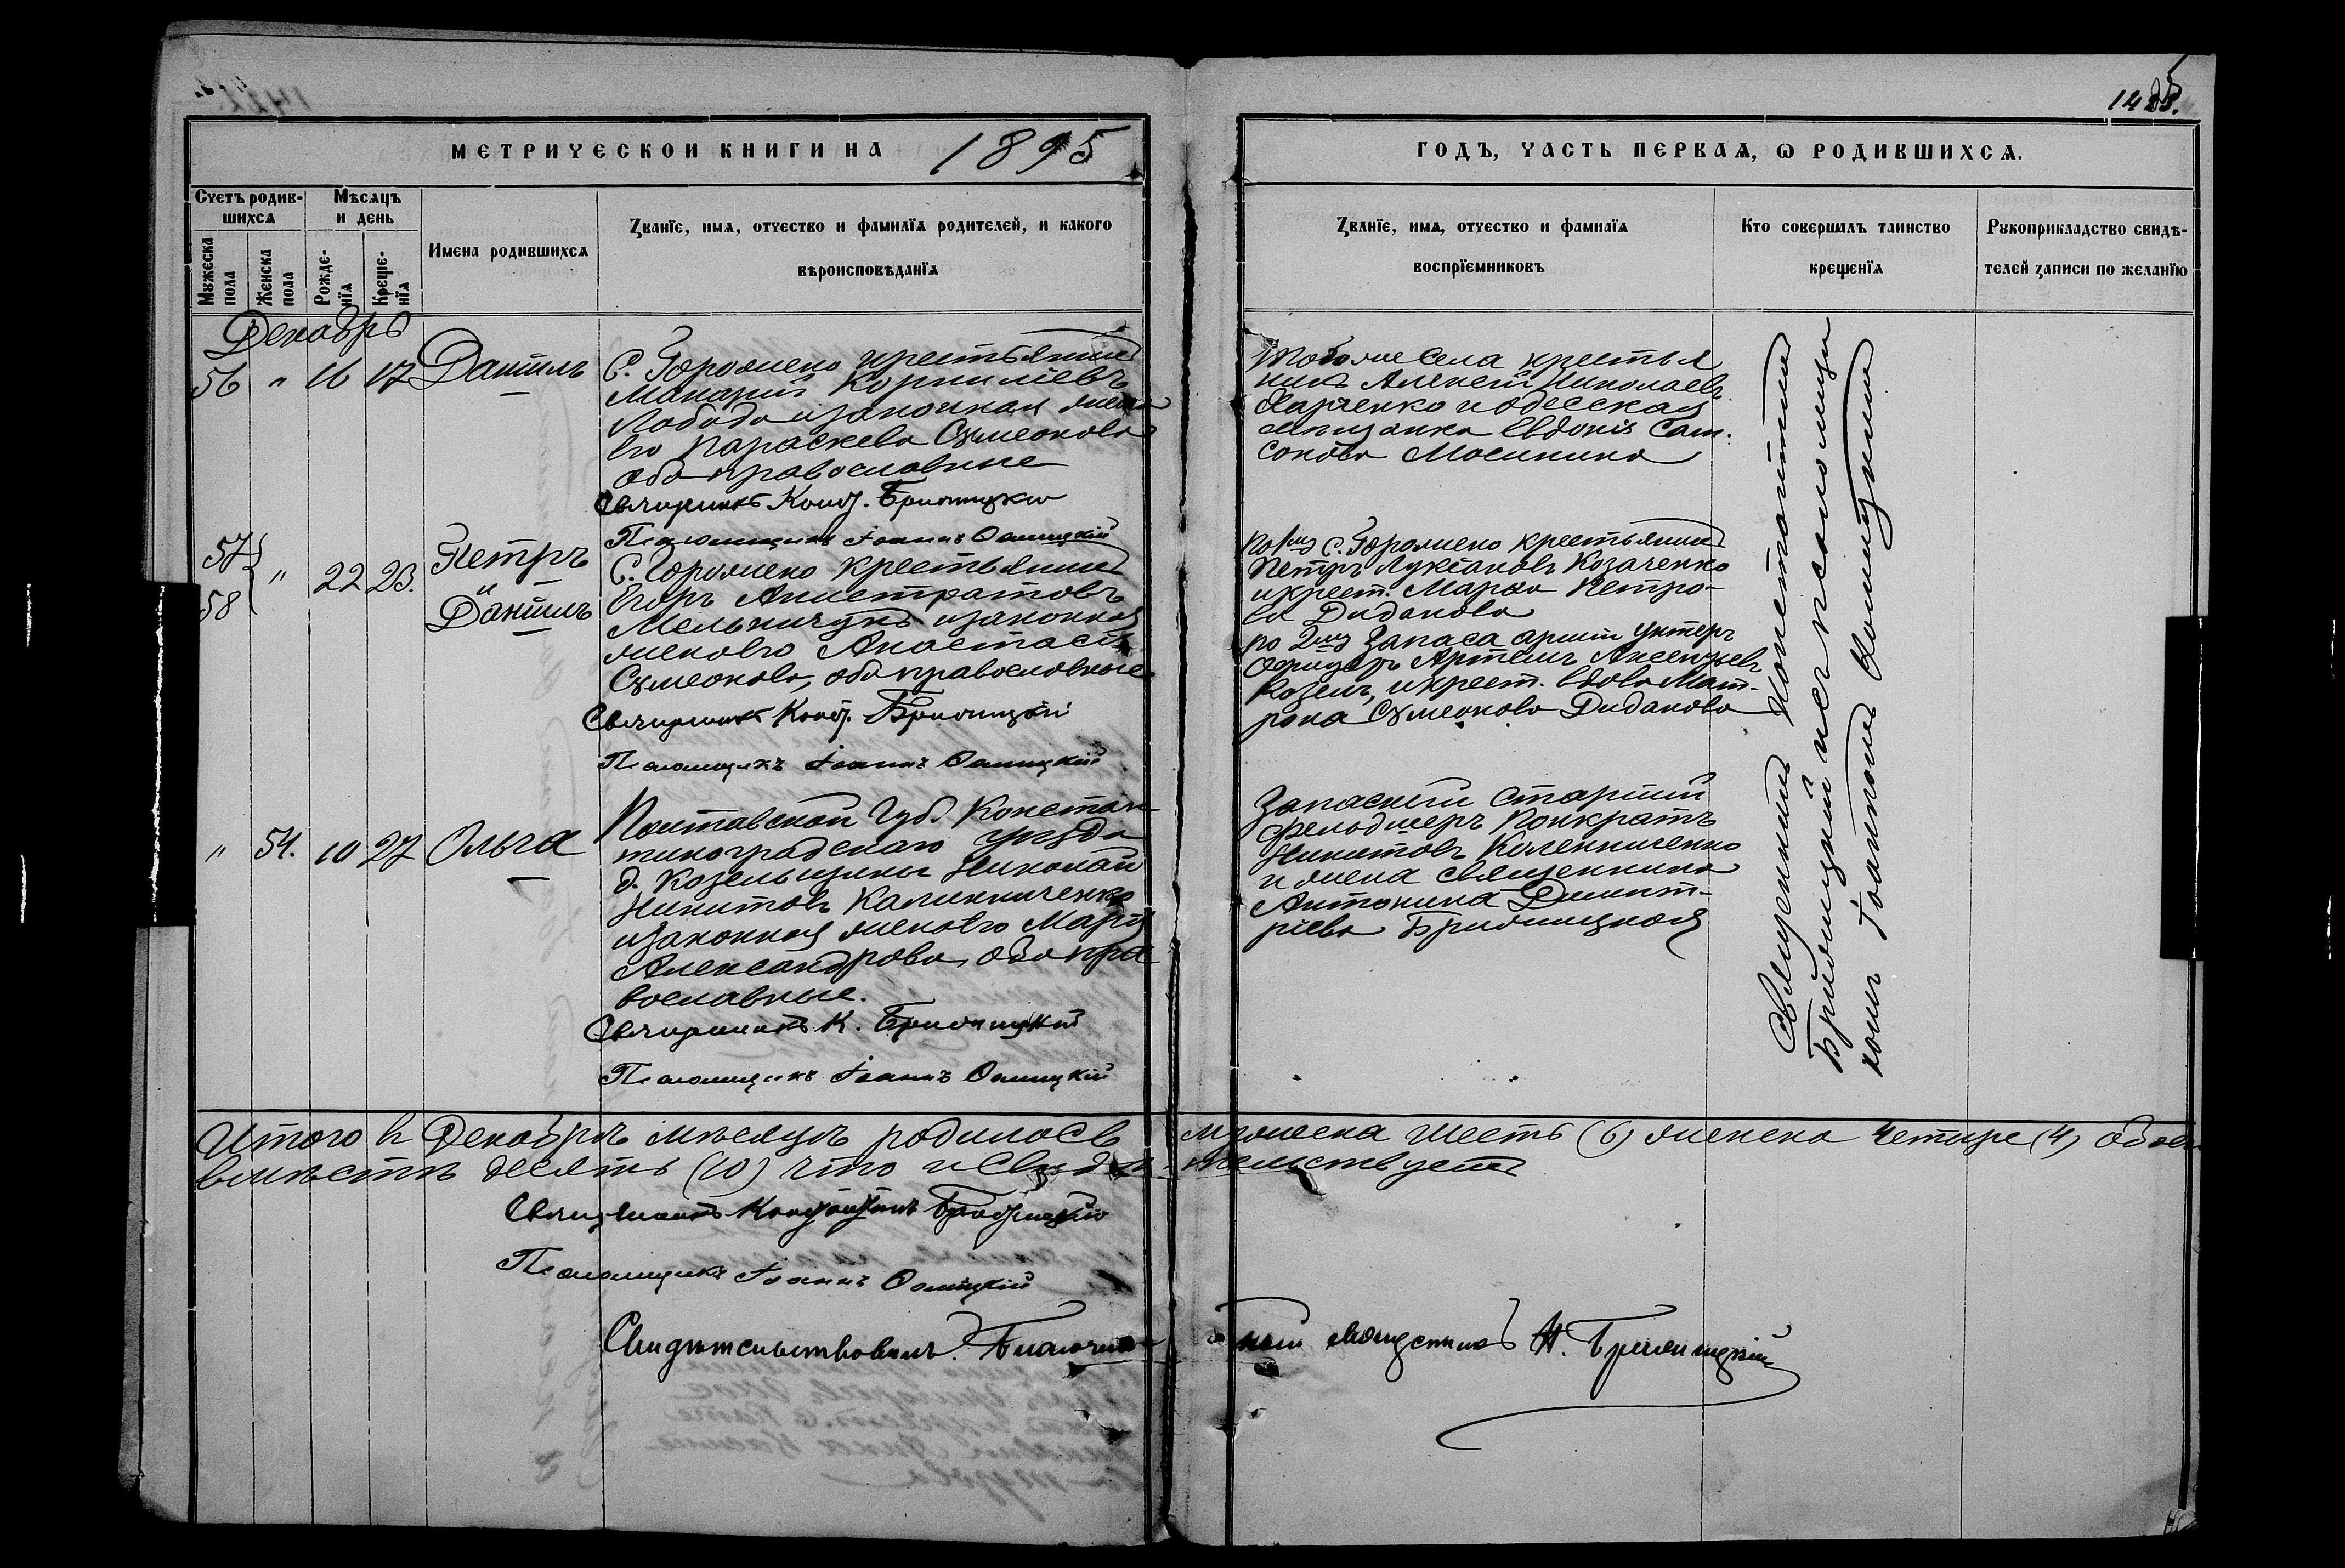 1485.
МЕТРИЧЕСКОЙ КНИГИ НА 1895
ГОДЪ, ЧАСТЬ ПЕРВАЯ, Ѡ РОДИВШИХСЯ.
Счетъ родив-
шихся
Мѣсяцъ
и день
Мужеска
пола
Женска
пола
Рожде-
нїя
Креще-
нїя
Имена родившихся
Званїе, имя, отчество и фамилїя родителей, и какого
вѣроисповѣданїя
Званїе, имя, отчество и фамилїя
воспрїемниковъ
Кто совершалъ таинство
крещенїя
Рукоприкладство свидѣ-
телей записи по желанїю
Декабрь
56 " 16 17 Даніилъ
С. Горожено крестьянинъ
Макарій Корниліевъ
Лобода и законная жена
его Параскева Сѵмеонова
оба православные
Священникъ Конст.
Псаломщикъ Іоаннъ
тогоже села крестья
нинъ Алексѣй Николаевъ
Харченко и одесская
мѣщанка Евдокія Сам-
сонова Мосинина
57
58 " 22 23. Петръ
и
Даніилъ
С. Горожено крестьянинъ
Егоръ Анистратовъ
Мельничукъ и законная
жена его Анастасія
Сѵмеонова, оба православные
Священникъ Конст.
Псаломщикъ Іоаннъ
по 1му С. Горожено крестьянинъ
Петръ Лукіановъ Козаченко
и крест. Марѳа Петро-
ва Диданова
по 2му Запаса арміи унтеръ
офицеръ Артемъ Аксентьевъ
Козелъ, и крест. вдова Мат-
рона Сѵмеонова Диданова
" 54. 10 27 Ольга
Полтавской Губ. Констан
тиноградскаго уѣзда
д. Козельщины Николай
Никитовъ Калинниченко
и законная жена его Марія
Александрова, оба пра
вославные.
Священникъ К.
Псаломщикъ Іоаннъ
Запасный старшій
фельдшеръ Панкратъ
Никитовъ Калинниченко
и жена священника
Антонина Димит-
ріева
Священникъ Константинъ
и псаломщи
комъ Іоанномъ
Итого въ Декабрѣ мѣсяцѣ родилось мужеска шесть (6) женска четыре (4) обоего
вмѣстѣ десять (10) что и свидѣтельствуетъ
Священникъ Константинъ
Псаломщикъ Іоаннъ
Свидѣтельствовалъ. Благочин
ный священникъ